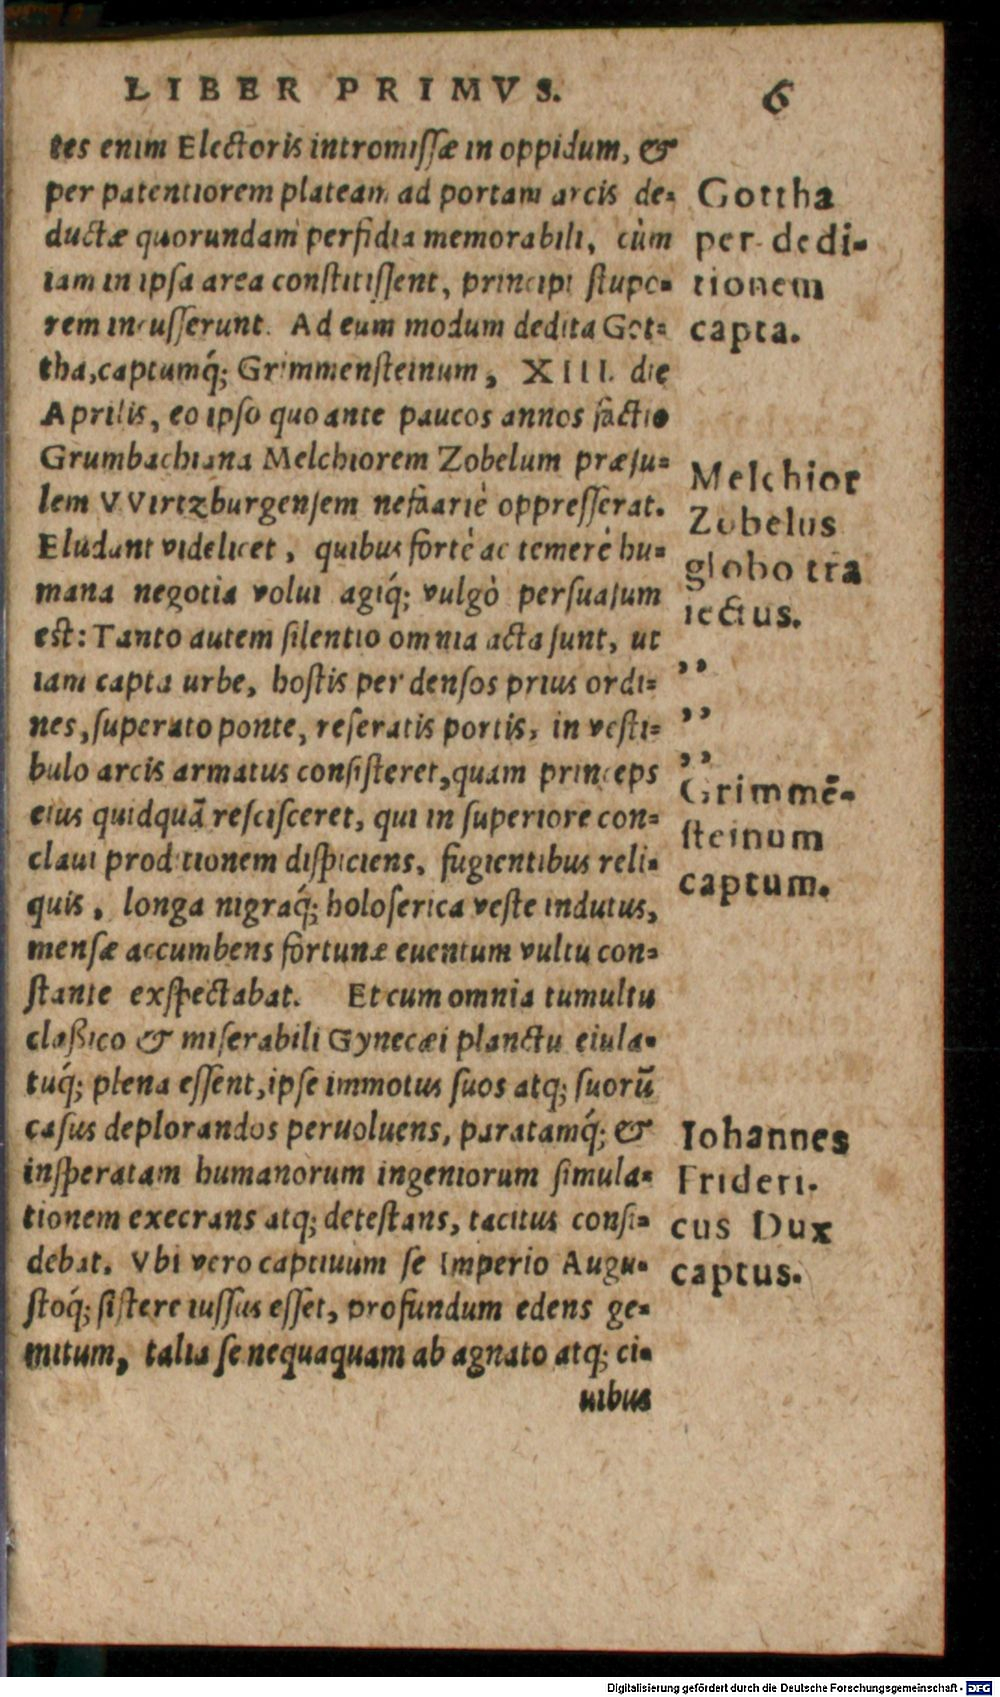 LIBER PRIMVS. 6
tes enim Electoris intromissæ in oppidum, &
per patentiorem plateam ad portam arcis de-
ductæ quorundam perfidia memorabili, cùm
iam in ipsa area constitissent, principi stupo-
rem incusserunt. Ad eum modum dedita Got-
tha, captumq́; Grimmensteinum, XIII. die
Aprilis, eo ipso quo ante paucos annos factio
Grumbachiana Melchiorem Zobelum præsu-
lem VVirtzburgensem nefariè oppresserat.
Eludant videlicet, quibus fortè ac temerè hu-
mana negotia volui agiq́; vulgò persuasum
est: Tanto autem silentio omnia acta sunt, ut
iam capta urbe, hostis per densos prius ordi-
nes, superato ponte, reseratis portis, in vesti-
bulo arcis armatus consisteret, quam princeps
eius quidquā rescisceret, qui in superiore con-
claui proditionem dispiciens, fugientibus reli-
quis, longa nigraq́; holoserica veste indutus,
mensæ accumbens fortunæ euentum vultu con-
stante exspectabat. Et cum omnia tumultu
classico & miserabili Gynecæi planctu eiula-
tuq́; plena essent, ipse immotus suos atq; suorū
casus deplorandos peruoluens, paratamq́; &
insperatam humanorum ingeniorum simula-
tionem execrans atq; detestans, tacitus consi-
debat. Vbi vero captiuum se Imperio Augu-
stoq́; sistere iussus esset, profundum edens ge-
mitum, talia se nequaquam ab agnato atq; ci-
uibus
Gottha
per dedi-
tionem
capta.
Melchior
Zobelus
globo tra
iectus.
,,
,,
,,
Grimmē-
steinum
captum.
Iohannes
Frideri-
cus Dux
captus.
Digitalisierung gefördert durch die Deutsche Forschungsgemeinschaft - DFG